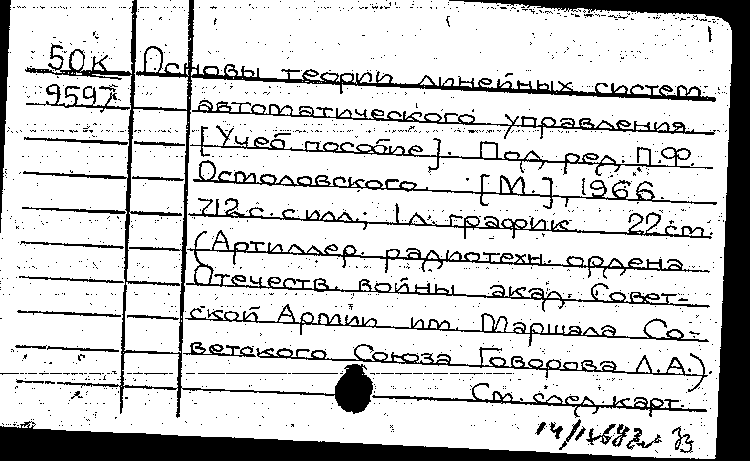 50к Основы теории линейных систем
9597 автоматического управления.
[Учеб. пособие]. Под ред. П.Ф.
Остоловского. [М.], 1966.
712 с. с илл.; 1 л. график 22 cm.
(Артиллер. радиотехн. ордена
Отечеств. войны акад. Совет-
ской Армии им. Маршала Со-
ветского Союза Говорова Л.А.).
См. след. карт.